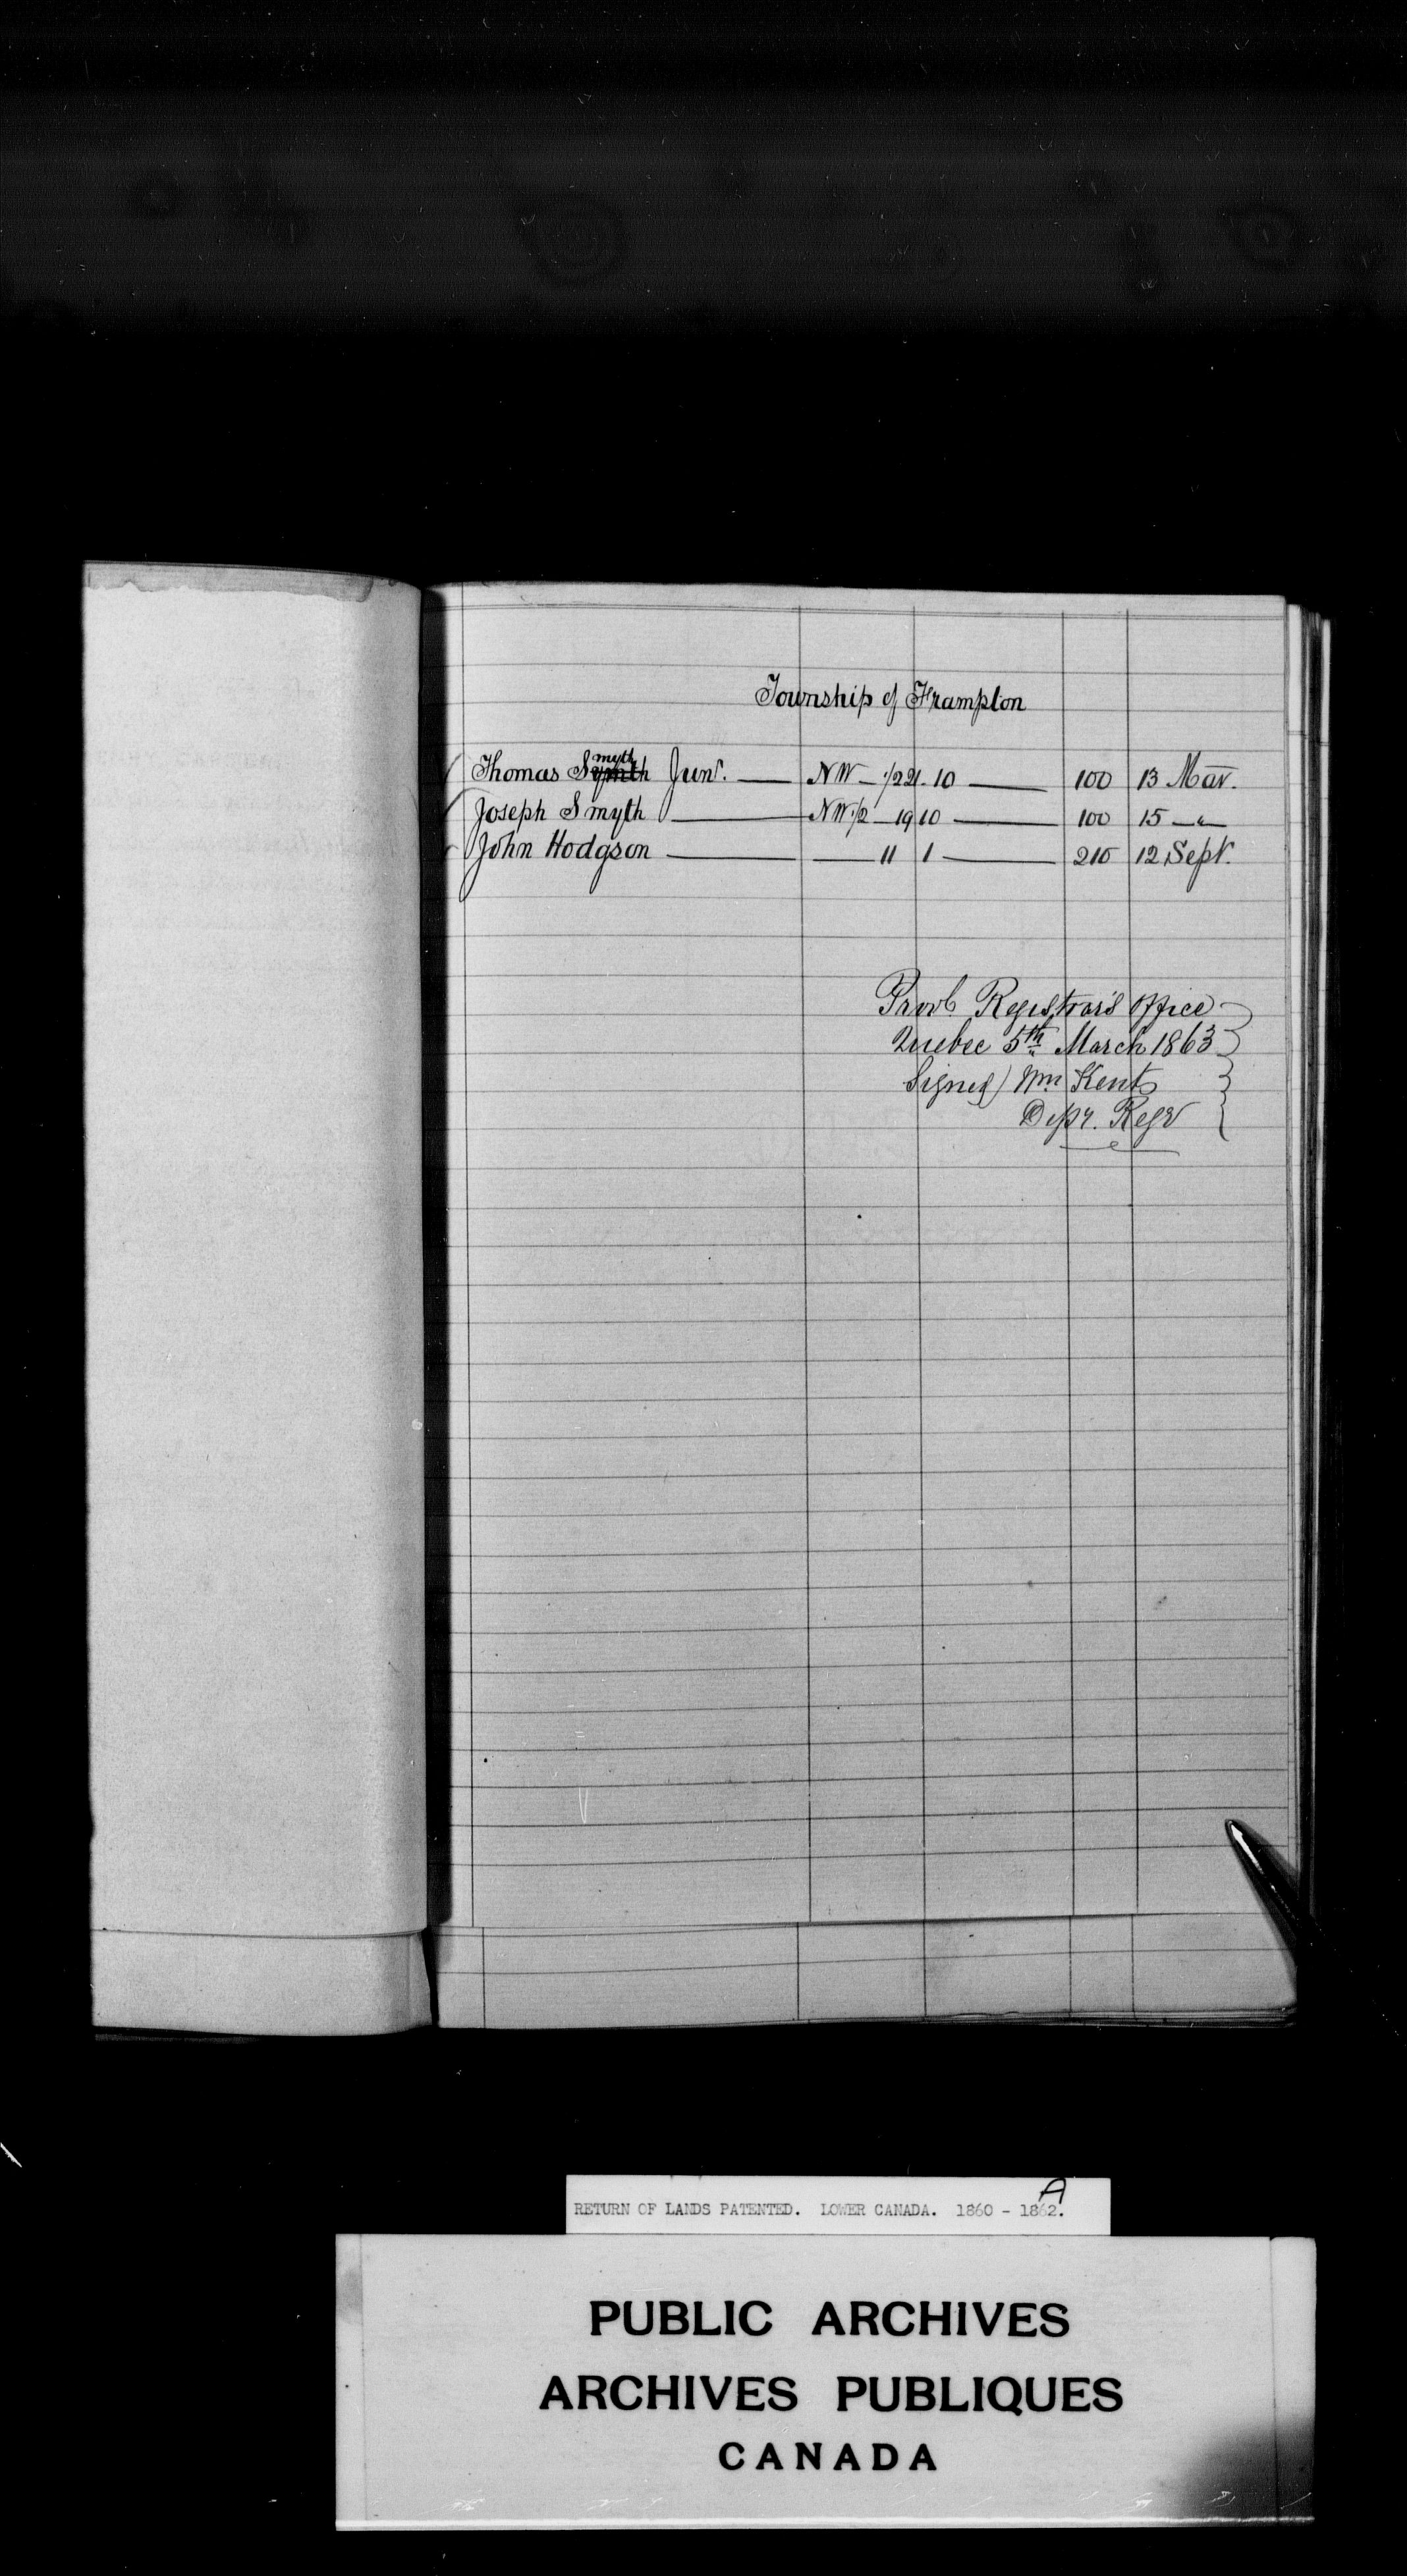 Township of Frampton
Thomas Symth myth Junr. NW ½ 21. 10 100 13 Mar.
Joseph Smyth NW ½ 19 10 100 15 "
John Hodgson 11 1 210 12 Sept.
Provl. Registrar's Office
Quebec 5th March 1863
Signed) Wm Kent
Depy. Regr
RETURN OF LANDS PATENTED. LOWER CANADA. 1860 - 1862.
A
PUBLIC ARCHIVES
ARCHIVES PUBLIQUES
CANADA